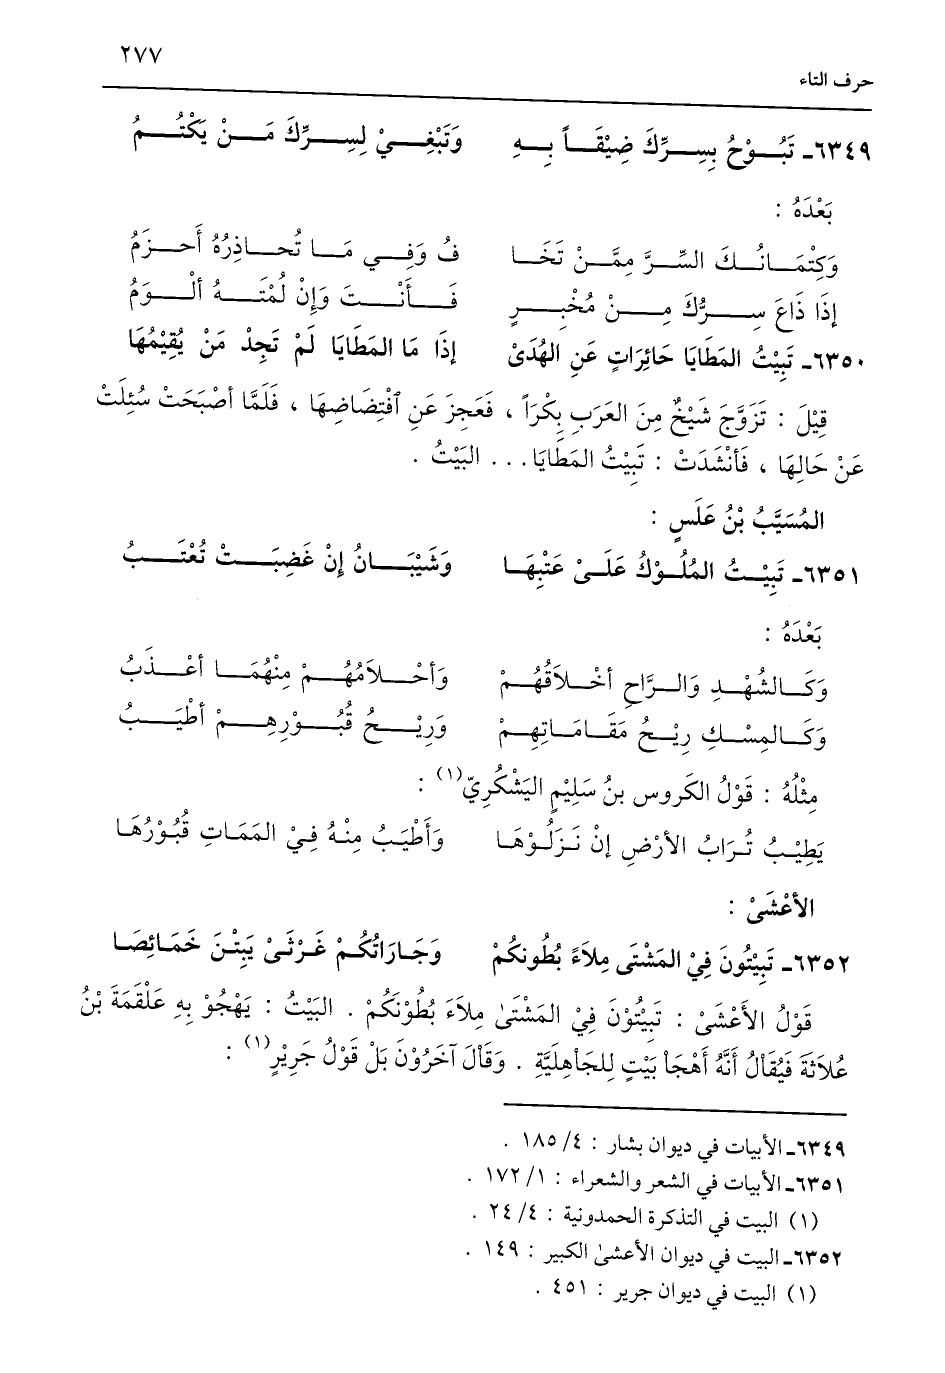 ٢٧٧
حرف التاء
٦٣٤٩ـ تَبُــوْحُ بِسِــرِّكَ ضِيْقَــاً بِــهِ وَتَبْغِــيْ لِسِــرِّكَ مَــنْ يَكْتُــمُ
بَعْدَهُ :
وَكِتْمَــانُــكَ السِّــرَّ مِمَّــنْ تَخَــا فُ وَفِــي مَــا تُحَــاذِرُهُ أَحــزَمُ
إِذَا ذَاعَ سِــرُّكَ مِــنْ مُخْبِــرٍ فَــأَنْــتَ وَإِنْ لُمْتَــهُ ألْــوَمُ
٦٣٥٠ـ تَبِيْتُ المَطَايَا حَائِرَاتٍ عَنِ الهُدَىْ إِذَا مَا المَطَايَا لَمْ تَجِدْ مَنْ يُقِيْمُهَا
قِيْلَ : تَزَوَّجَ شَيْخٌ مِنَ العَرَبِ بِكْرَاً ، فَعَجِزَ عَنِ ٱفْتِضَاضِهَا ، فَلَمَّا أصْبَحَتْ سُئِلَتْ
عَنْ حَالِهَا ، فَأَنْشَدَتْ : تَبِيْتُ المَطَايَا... البَيْتُ .
المُسَيَّبُ بْنُ عَلَسٍ :
٦٣٥١ـ تَبِيْــتُ المُلُــوْكُ عَلَــىْ عَتْبِهَــا وَشَيْبَــانُ إِنْ غَضِبَــتْ تُعْتَــبُ
بَعْدَهُ :
وَكَــالشُهْــدِ وَالــرَّاحِ أَخْــلاَقُهُــمْ وَأَحْــلاَمُهُــمْ مِنْهُمَــا أَعْــذَبُ
وَكَــالمِسْــكِ رِيْــحُ مَقَــامَــاتِهِــمْ وَرِيْــحُ قُبُــوْرِهِــمْ أطْيَــبُ
مِثْلُهُ : قَوْلُ الكَروس بنُ سَلِيْمٍ اليَشْكُرِيّ(١) :
يَطِيْــبُ تُرَابُ الأَرْضِ إِنْ نَزَلُوْهَا وَأَطْيَبُ مِنْهُ فِيْ المَمَاتِ قُبُوْرُهَا
الأَعْشَىْ :
٦٣٥٢ـ تَبِيْتُونَ فِيْ المَشْتَى مِلاَءً بُطُونكُمْ وَجَارَاتُكُمْ غَرْثَىْ يَبِتْنَ خَمَائِصَا
قَوْلُ الأَعْشَىْ : تَبِيْتُوْنَ فِيْ المَشْتَىٰ مِلاَءَ بُطُوْنَكُمْ . البَيْتُ : يَهْجُوْ بِهِ عَلْقَمَةَ بْنُ
عُلاَثَةَ فَيُقَالُ أَنَّهُ أَهْجَأ بَيْتٍ لِلجَاْهِلِيَّةِ . وَقَالَ آخَرُوْنَ بَلْ قَوْلُ جَرِيْرٍ(١) :
٦٣٤٩ـ الأبيات في ديوان بشار : ٤/ ١٨٥ .
٦٣٥١ـ الأبيات في الشعر والشعراء : ١/ ١٧٢ .
(١) البيت في التذكرة الحمدونية : ٤/ ٢٤ .
٦٣٥٢ـ البيت في ديوان الأعشىٰ الكبير : ١٤٩ .
(١) البيت في ديوان جرير : ٤٥١ .